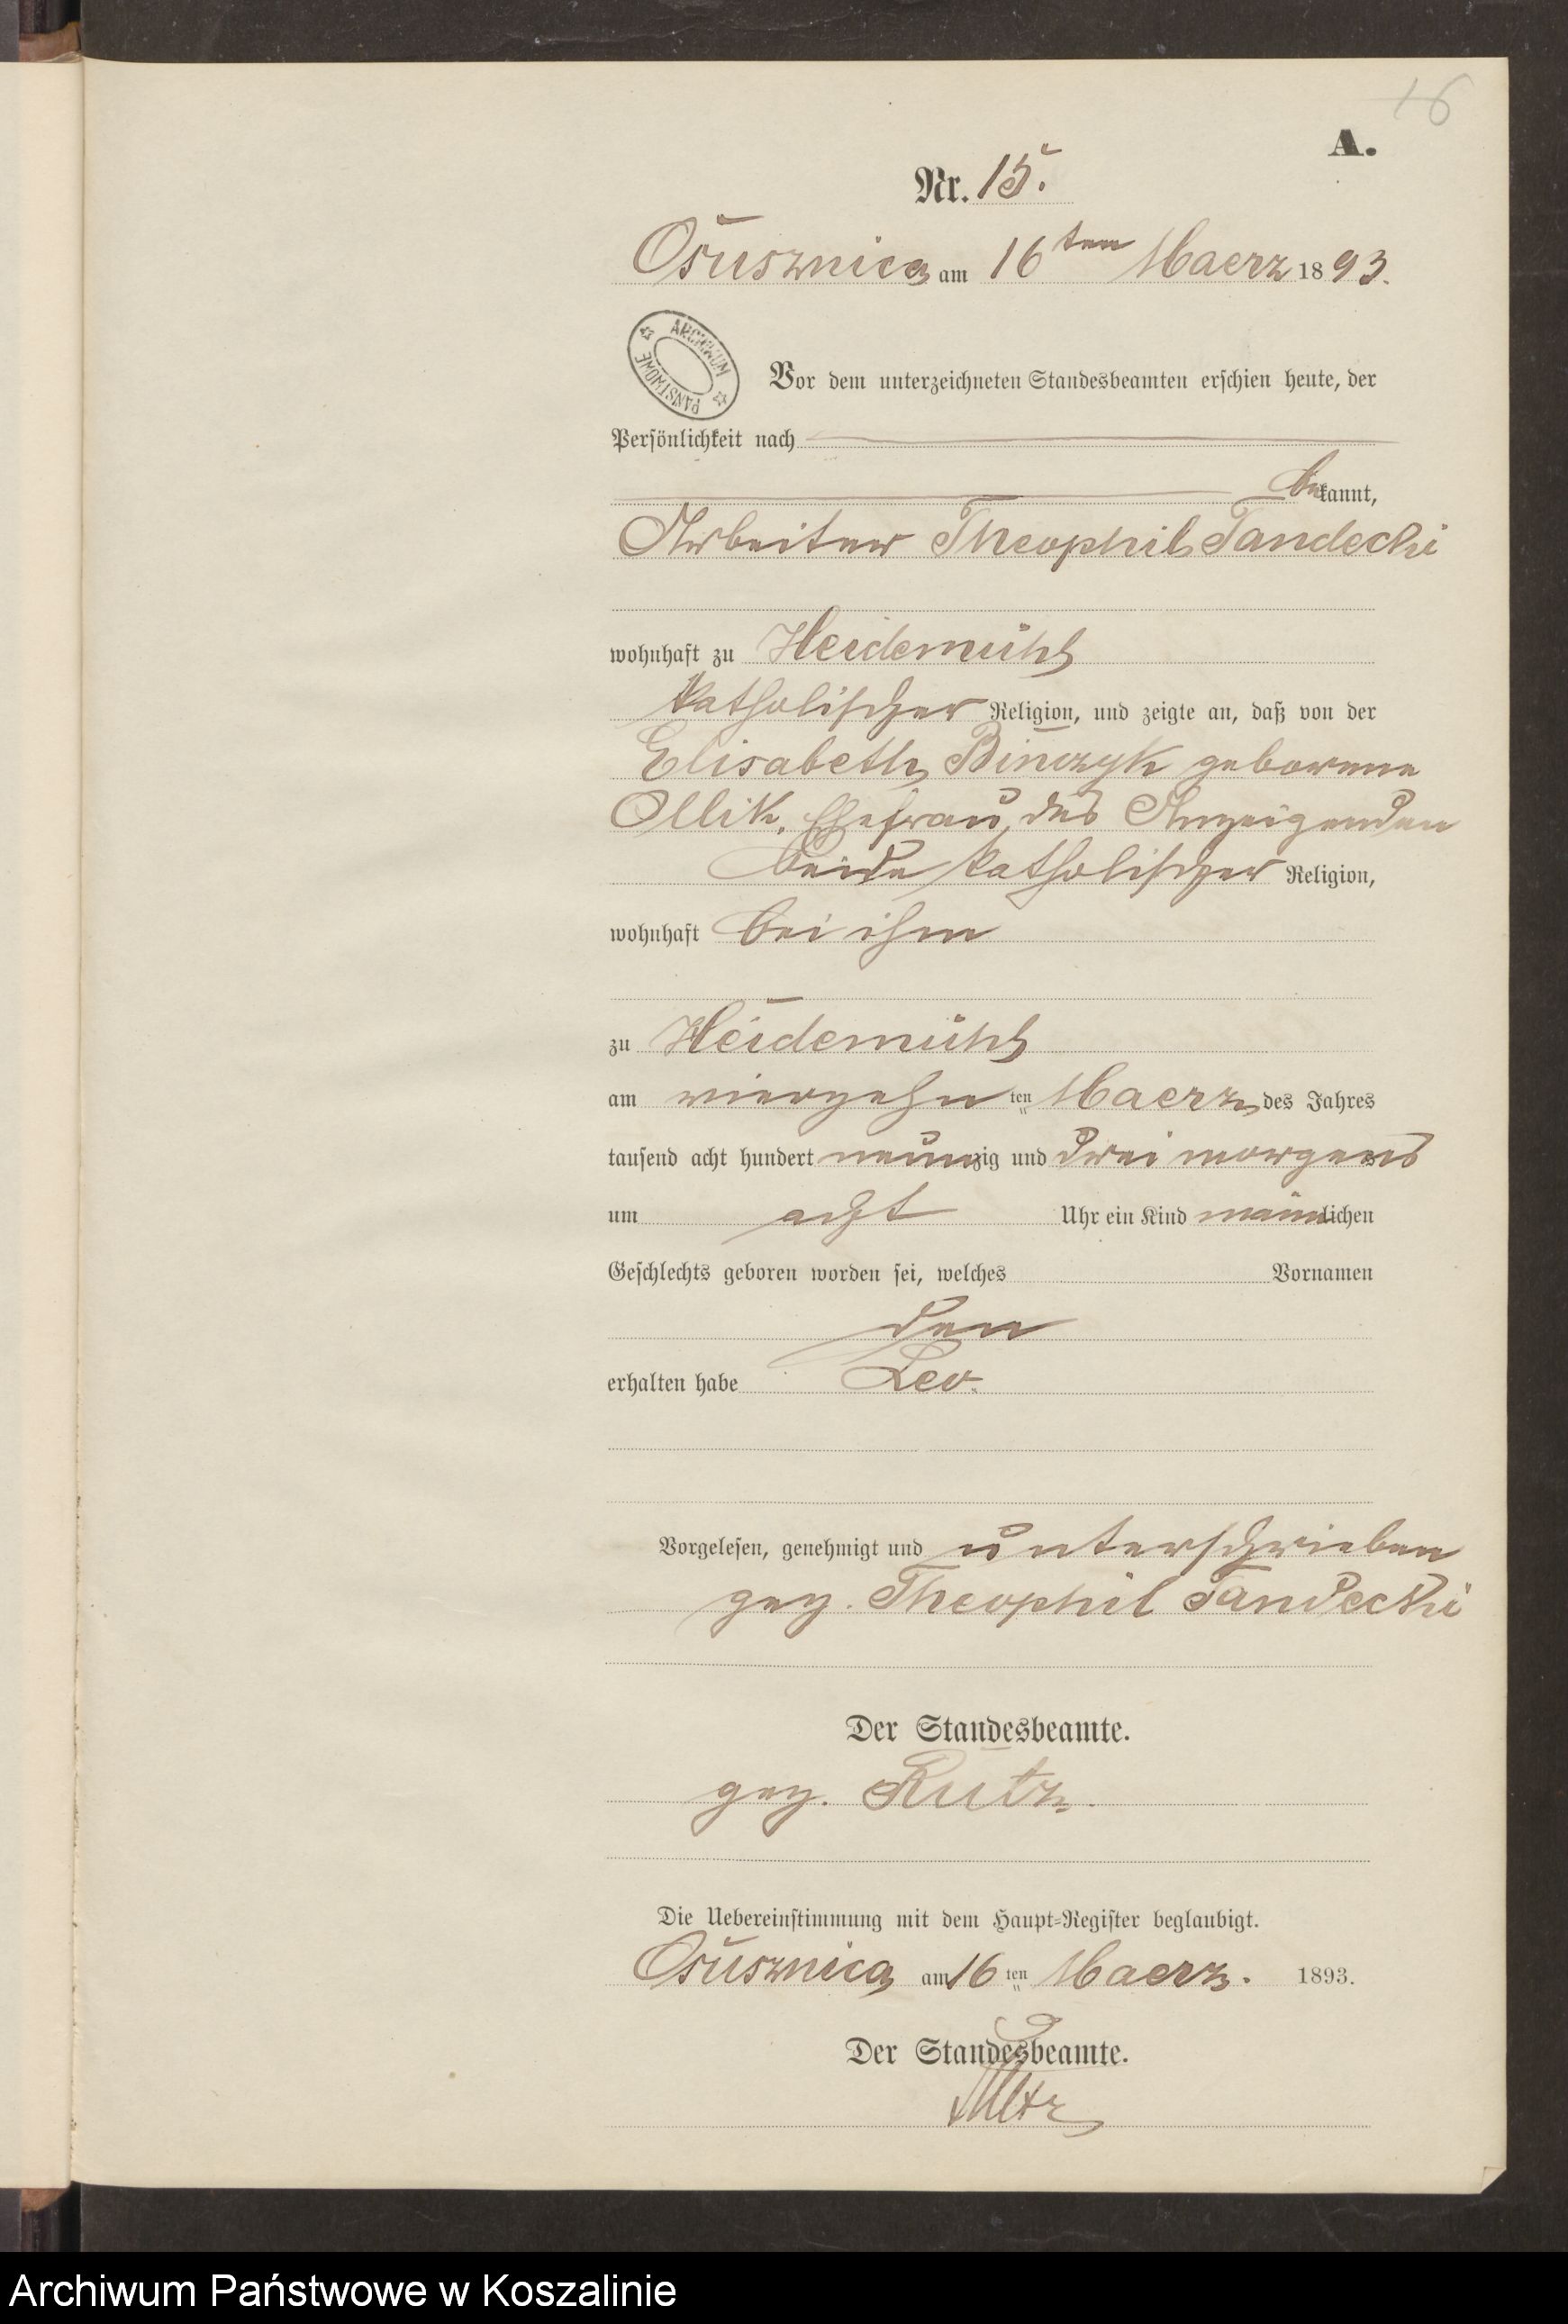 16
A.
Nr. 15.
Osusznica am 16ten Maerz 1893.
ARCHIWUM PAŃSTWOWE
Vor dem unterzeichneten Standesbeamten erschien heute, der
Persönlichkeit nach
bekannt,
Arbeiter Theophil Tandecki
wohnhaft zu Heidemühl
katholischer Religion, und zeigte an, daß von der
Elisabeth Binczyk geborene
Ollik, Ehefrau des Anzeigenden
beide katholischer Religion,
wohnhaft bei ihm
zu Heidemühl
am vierzehn ten Maerz des Jahres
tausend acht hundert neunzig und drei morgens
um acht Uhr ein Kind männlichen
Geschlechts geboren worden sei, welches Vornamen
den
erhalten habe Leo.
Vorgelesen, genehmigt und unterschrieben
gez. Theophil Tandecki
Der Standesbeamte.
gez. Rutz.
Die Uebereinstimmung mit dem Haupt-Register beglaubigt.
Osusznica am 16 ten Maerz. 1893.
Der Standesbeamte.
Rutz
Archiwum Państwowe w Koszalinie